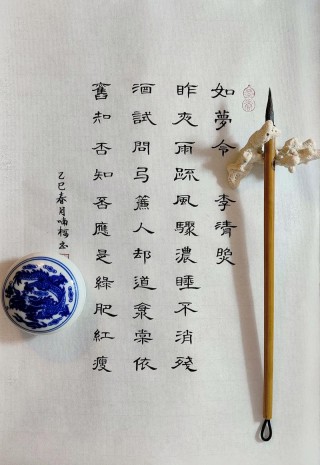 如夢令 李清照
昨夜雨疏風驟濃睡不消殘
酒試問卷簾人却道海棠依
舊知否知否應是綠肥紅瘦
乙巳春月